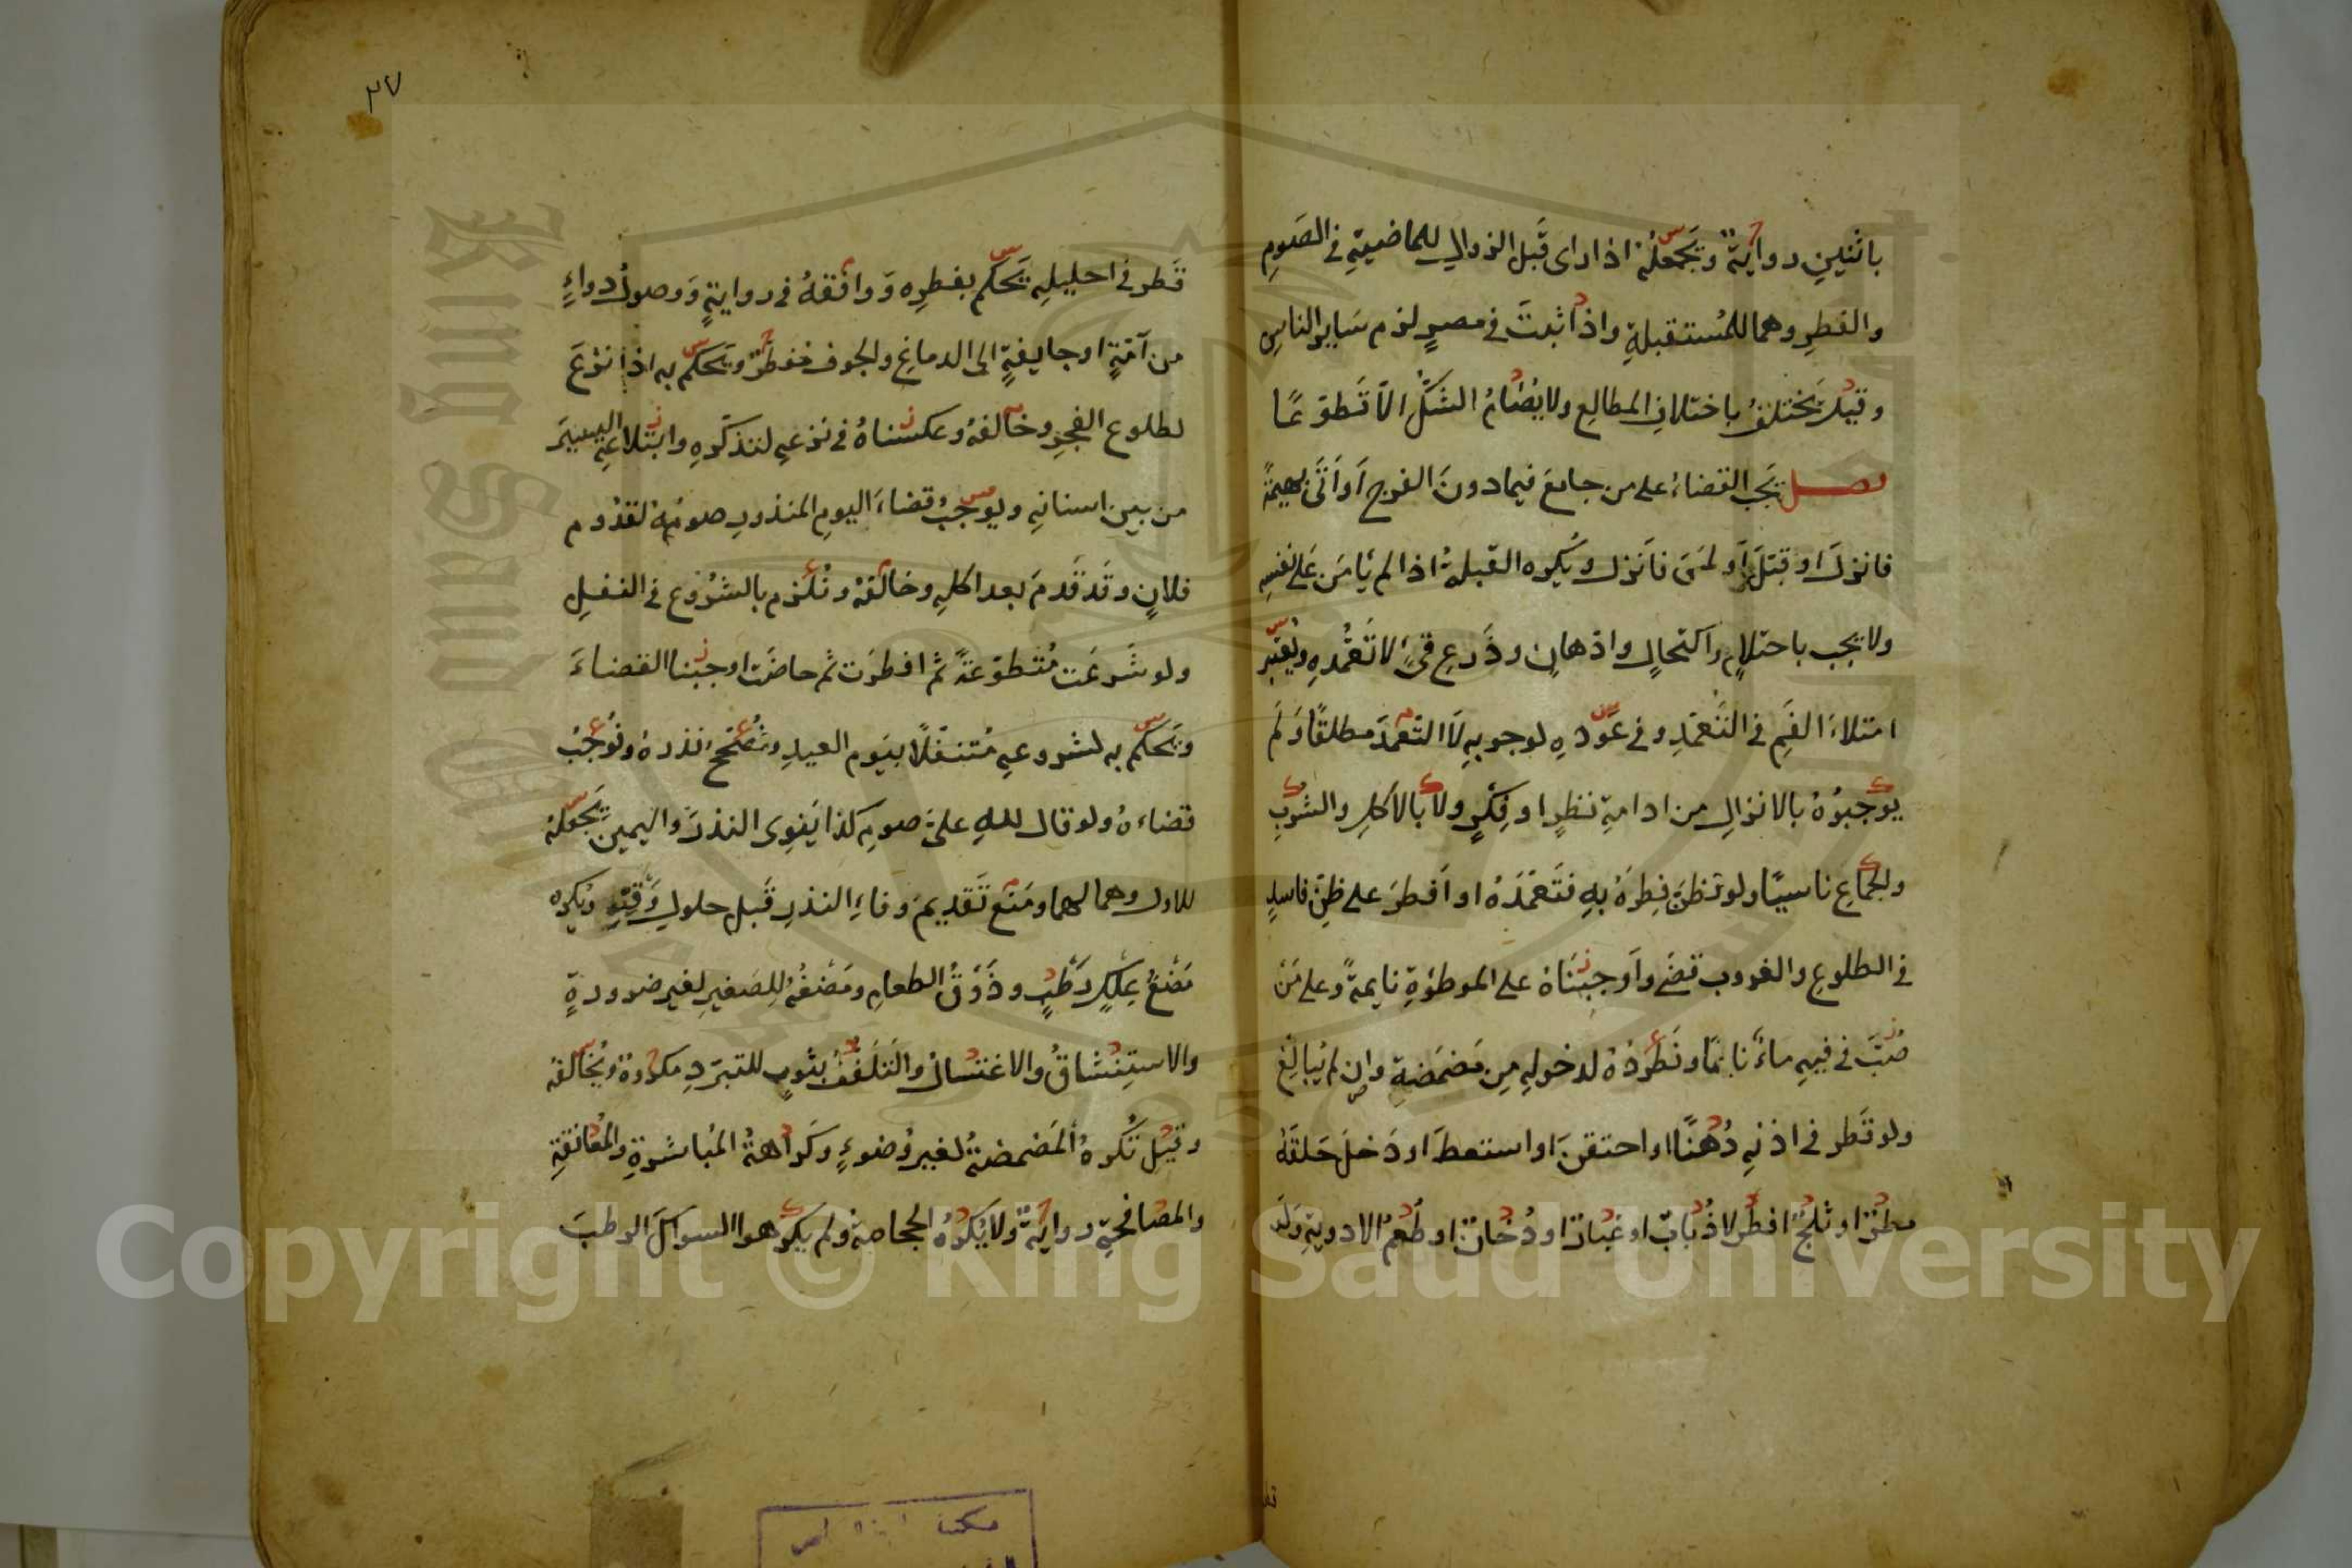 باثنين رواية ويجعله اذا رای قبل الزوال للماضية في الصوم
والفطر وهما للمستقبلة واذا ثبت في مصر لزم ساير الناس
وقيل يختلف باختلاف المطالع ولا يصام الشك الا تطوعا
فصل يجب القضاء على من جامع فيما دون الفرج او اتى بهيمة
فانزل او قبل او لمس فانزل ويكره القبلة اذا لم يامن على نفسه
ولا يجب باحتلام واكتحال وادهان وذرع قئ لا تعمده ويعتبر
امتلاء الفم في التعمد وفي عوده لوجوبه لا التعمد مطلقا ولم
يوجبوه بالانزال من ادامة نظر او فكر ولا بالاكل والشرب
والجماع ناسيا ولو ظن فطره به فتعمده او افطر على ظن فاسد
في الطلوع والغروب قضى واوجبناه على الموطوة نايمة وعلى من
صب في فيه ماء نايما ونطرده لدخوله من مضمضة وان لم يبالغ
ولو قطر في اذنه دهنا او احتقن او استعط او دخل حلقه
مطر او ثلج افطر لا ذباب او غبار او دخان او طعم الادوية ولو
٢٧
قطر في احليله يحكم بفطره ووافقه في رواية ووصول دواء
من آمة او جايفة الى الدماغ والجوف مفطر ويحكم به اذا نزع
لطلوع الفجر وخالفه وعكسناه في نزعه لتذكره وابتلاعه اليسير
من بين اسنانه ويوجب قضاء اليوم المنذور صومه لقدوم
فلان وقد قدم بعد اكله وخالفه ونلزم بالشروع في النفل
ولو شرعت متطوعة ثم افطرت ثم حاضت اوجبنا القضاء
ويحكم به لشروعه متنفلا بيوم العيد ونصحح نذره ونوجب
قضاءه ولو قال لله على صوم كذا ينوى النذر واليمين يجعله
للاول وهما لهما ومنع تقديم وفاء النذر قبل حلول وقته ويكره
مضغ علك رطب وذوق الطعام ومضغه للصغير لغير ضرورة
والاستنشاق والاغتسال والتلفف بثوب للتبرد مكروه ويخالفه
وقيل تكره المضمضة لغير وضوء وكراهة المباشرة والمعانقة
والمصافحة رواية ولا يكره الحجامة ولم يكرهوا السواك الرطب
مكتبة
Copyright © King Saud University